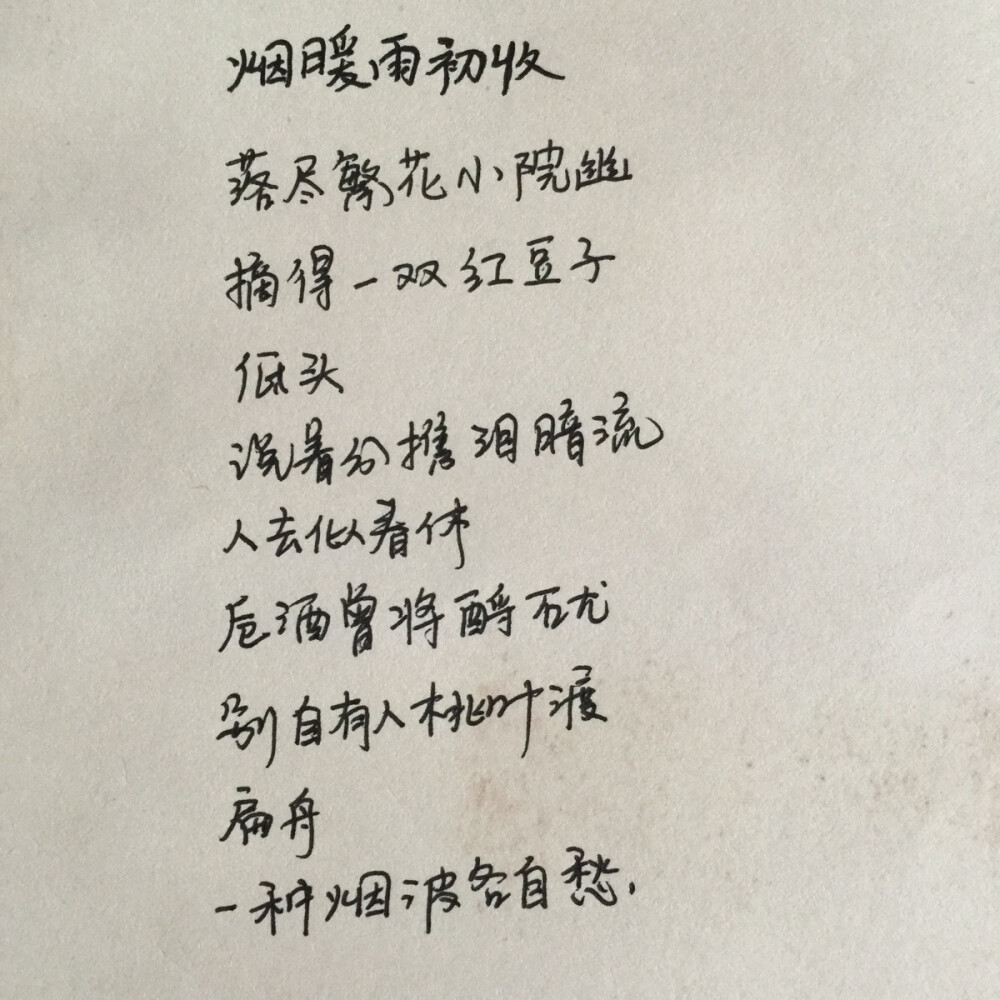 烟暖雨初收
落尽繁花小院幽
摘得一双红豆子
低头
说着分携泪暗流
人去似春休
卮酒曾将酹石尤
别自有人桃叶渡
扁舟
一种烟波各自愁.